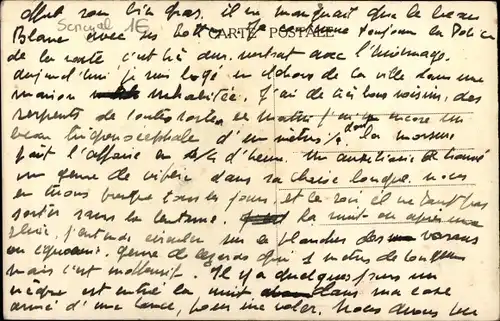 effet son bien gras, il ne manquait que le beau
Senegal 1E
Blanc avec ses bottes. Je mène toujours la Police
CARTE POSTALE
de la route c'est très dur, surtout avec l'arrimage.
Aujourd'hui je suis logé en dehors de la ville dans une
maison inhabitée. J'ai de très bons voisins, des
serpents de toutes sortes, ce matin j'ai vu encore un
beau trigonocéphale d'un mètre ½ dont la morsure
fait l'affaire en d'heure. Un auxiliaire a trouvé
un genre de vipère dans sa chaise longue. Nous
en tuons presque tous les jours et le soir, il ne faut pas
sortir sans la lanterne. la nuit ou après une
pluie, j'entends circuler sur les planches des varans
ou iguanes. genre de lézards qui 1 mètre de long
mais c'est inoffensif. Il y a quelques jours un
nègre est entré la nuit dans ma case
armé d'une lance, pour me voler. Nous avons pu